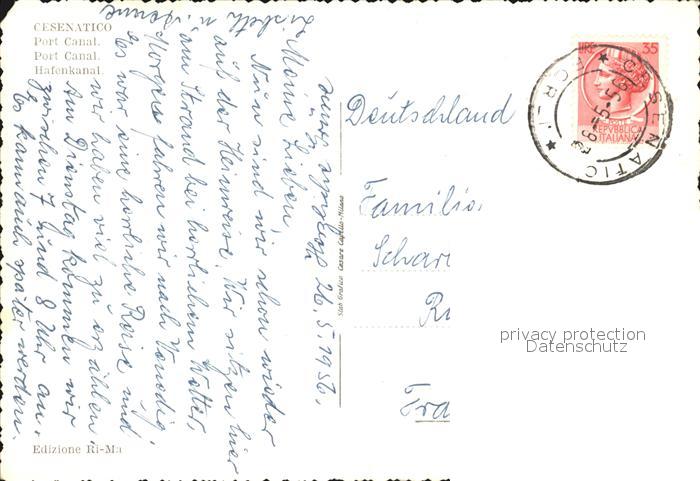 CESENATICO
Port Canal.
Port Canal.
Hafenkanal.
26.5.1956.
Meine Lieben
Nun sind wir schon wieder
auf der Heimreise. Wir sitzen hier
am Strand bei herrlichem Wetter,
Morgen fahren wir nach Venedig.
Es war eine herrliche Reise und
wir haben viel zu erzählen.
Am Dienstag kommen wir
zwischen 7 und 8 Uhr an.
Es kann auch später werden.
Edizione Ri-Ma
Stab Grafico Cesare Capello-Milano
Deutschland
Familie
Schar
Ri
Fra
LIRE 35
POSTE
REPVBBLICA
ITALIANA
CESENATICO
FORLI
privacy protection
Datenschutz